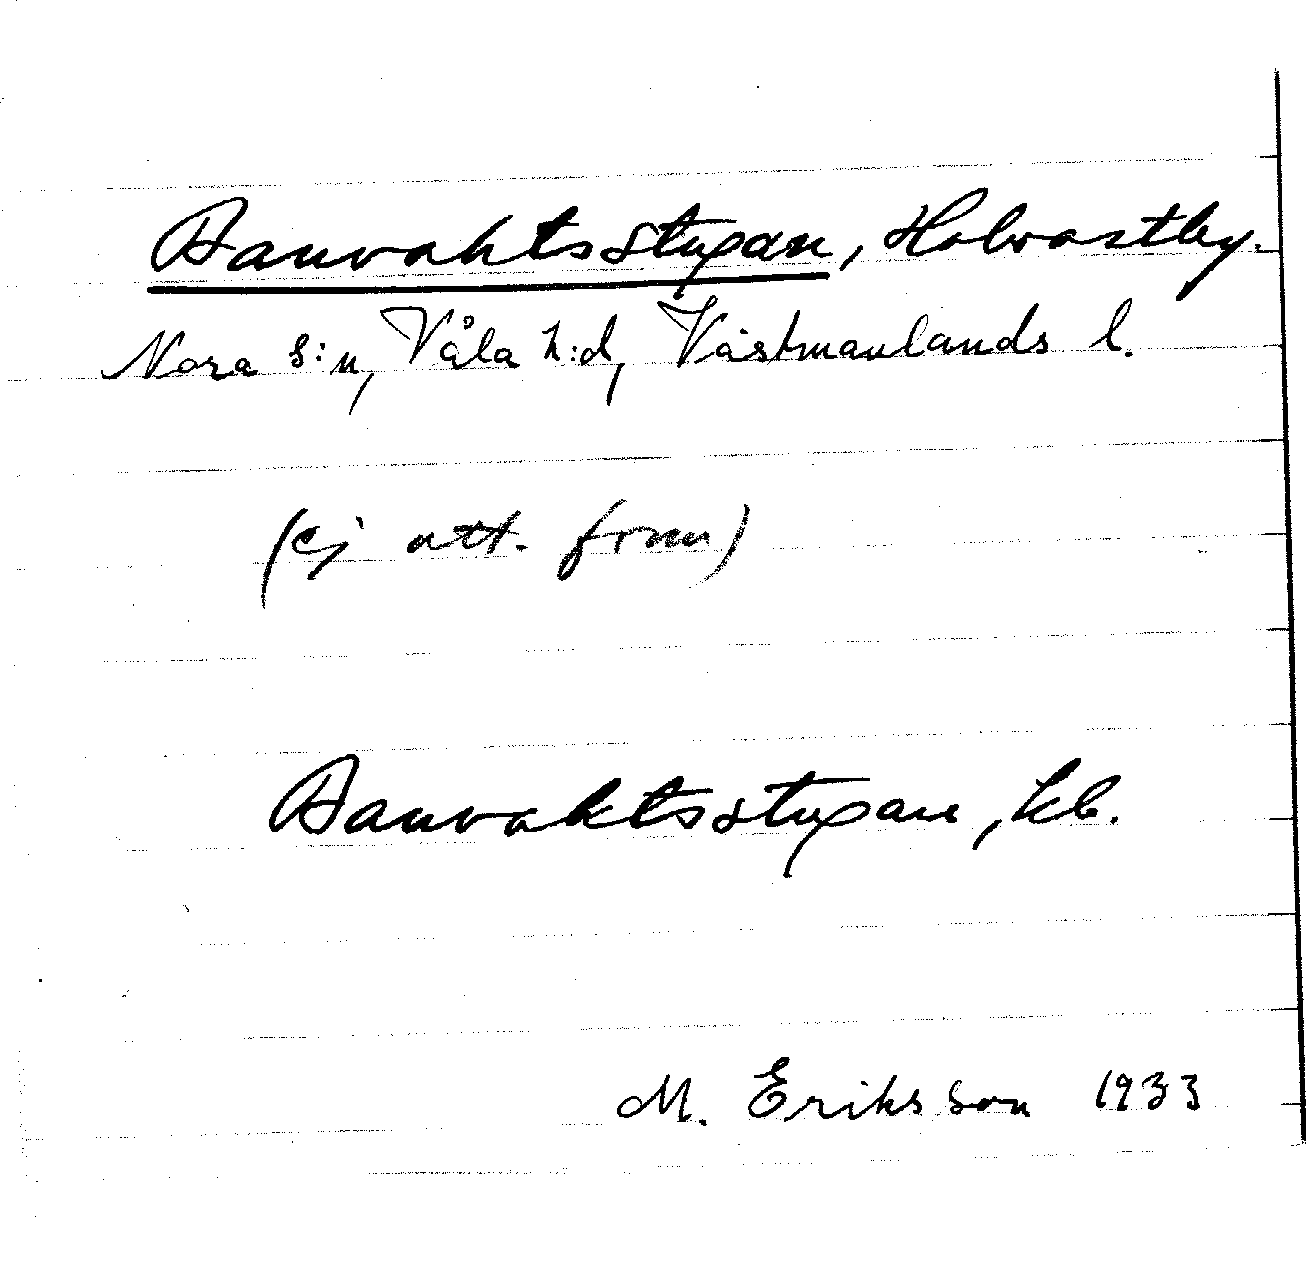 Banvaktsstugan, Holvastby.
Nora s:n, Våla h:d, Västmanlands l.
(ej utt. frm)
Banvaktsstugan, lb.
M. Eriksson 1933